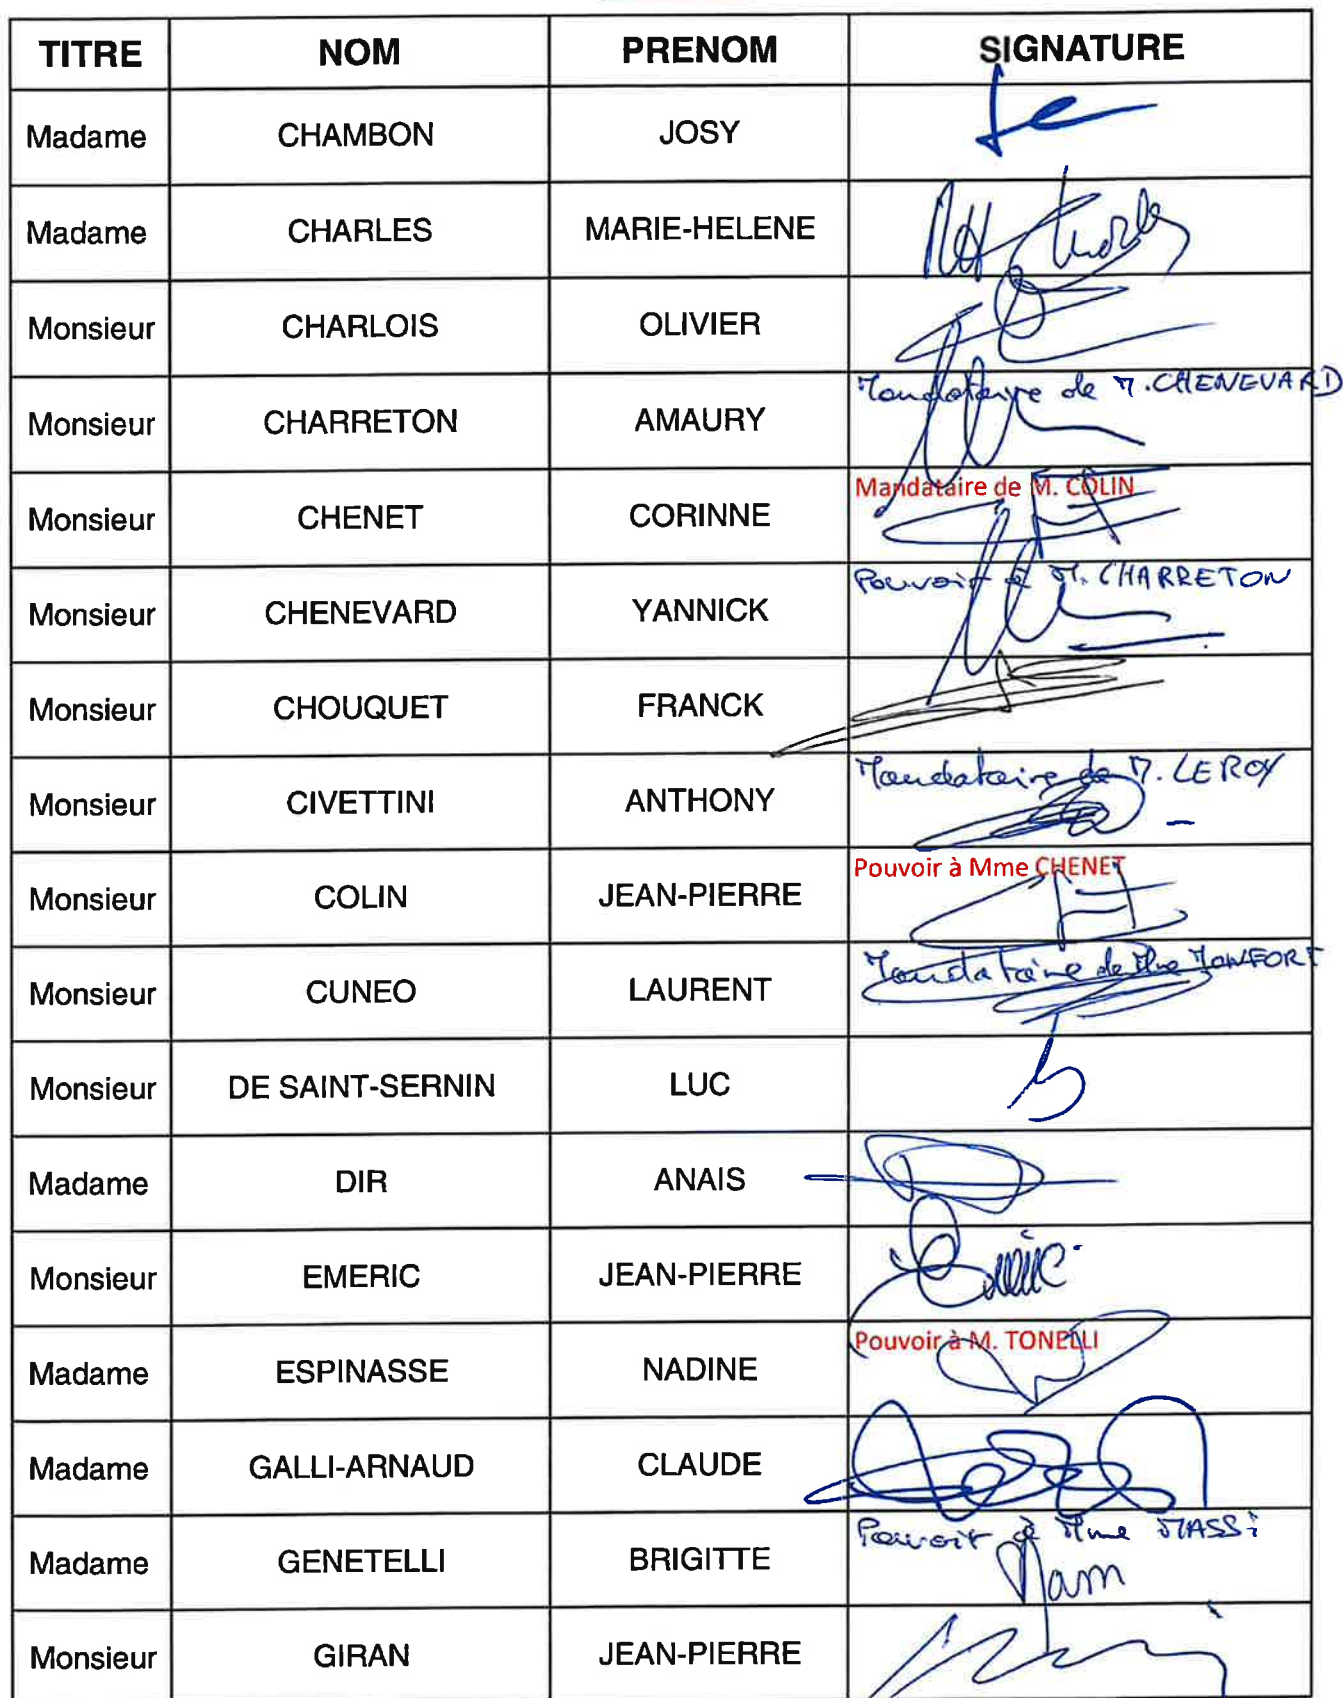 TITRE NOM PRENOM SIGNATURE
Madame CHAMBON JOSY
Madame CHARLES MARIE-HELENE MH Charles
Monsieur CHARLOIS OLIVIER
Monsieur CHARRETON AMAURY Mandataire de M. CHENEVARD
Monsieur CHENET CORINNE Mandataire de M. COLIN
Monsieur CHENEVARD YANNICK Pouvoir à M. CHARRETON
Monsieur CHOUQUET FRANCK
Monsieur CIVETTINI ANTHONY Mandataire de M. LEROY
Monsieur COLIN JEAN-PIERRE Pouvoir à Mme CHENET
Monsieur CUNEO LAURENT Mandataire de Mme MONFORT
Monsieur DE SAINT-SERNIN LUC
Madame DIR ANAIS
Monsieur EMERIC JEAN-PIERRE
Madame ESPINASSE NADINE Pouvoir à M. TONELLI
Madame GALLI-ARNAUD CLAUDE
Madame GENETELLI BRIGITTE Pouvoir à Mme MASSi
Monsieur GIRAN JEAN-PIERRE